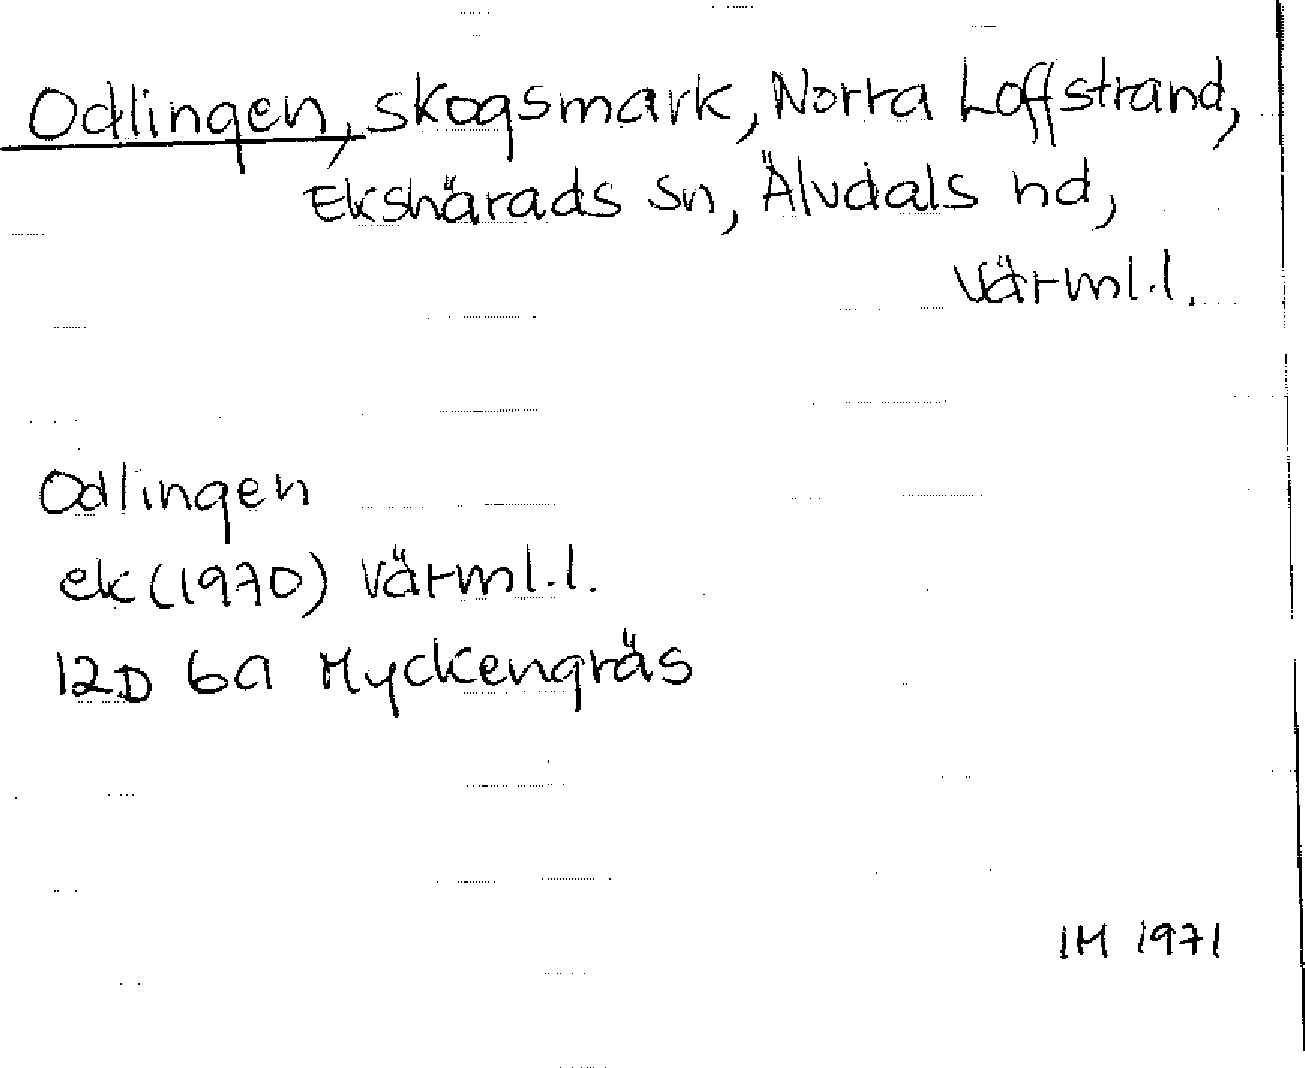 Odlingen, skogsmark, Norra Loffstrand,
Ekshärads sn, Älvdals hd,
Värml.l.
Odlingen
ek (1970) Värml.l.
12D 6a Myckengräs
IM 1971